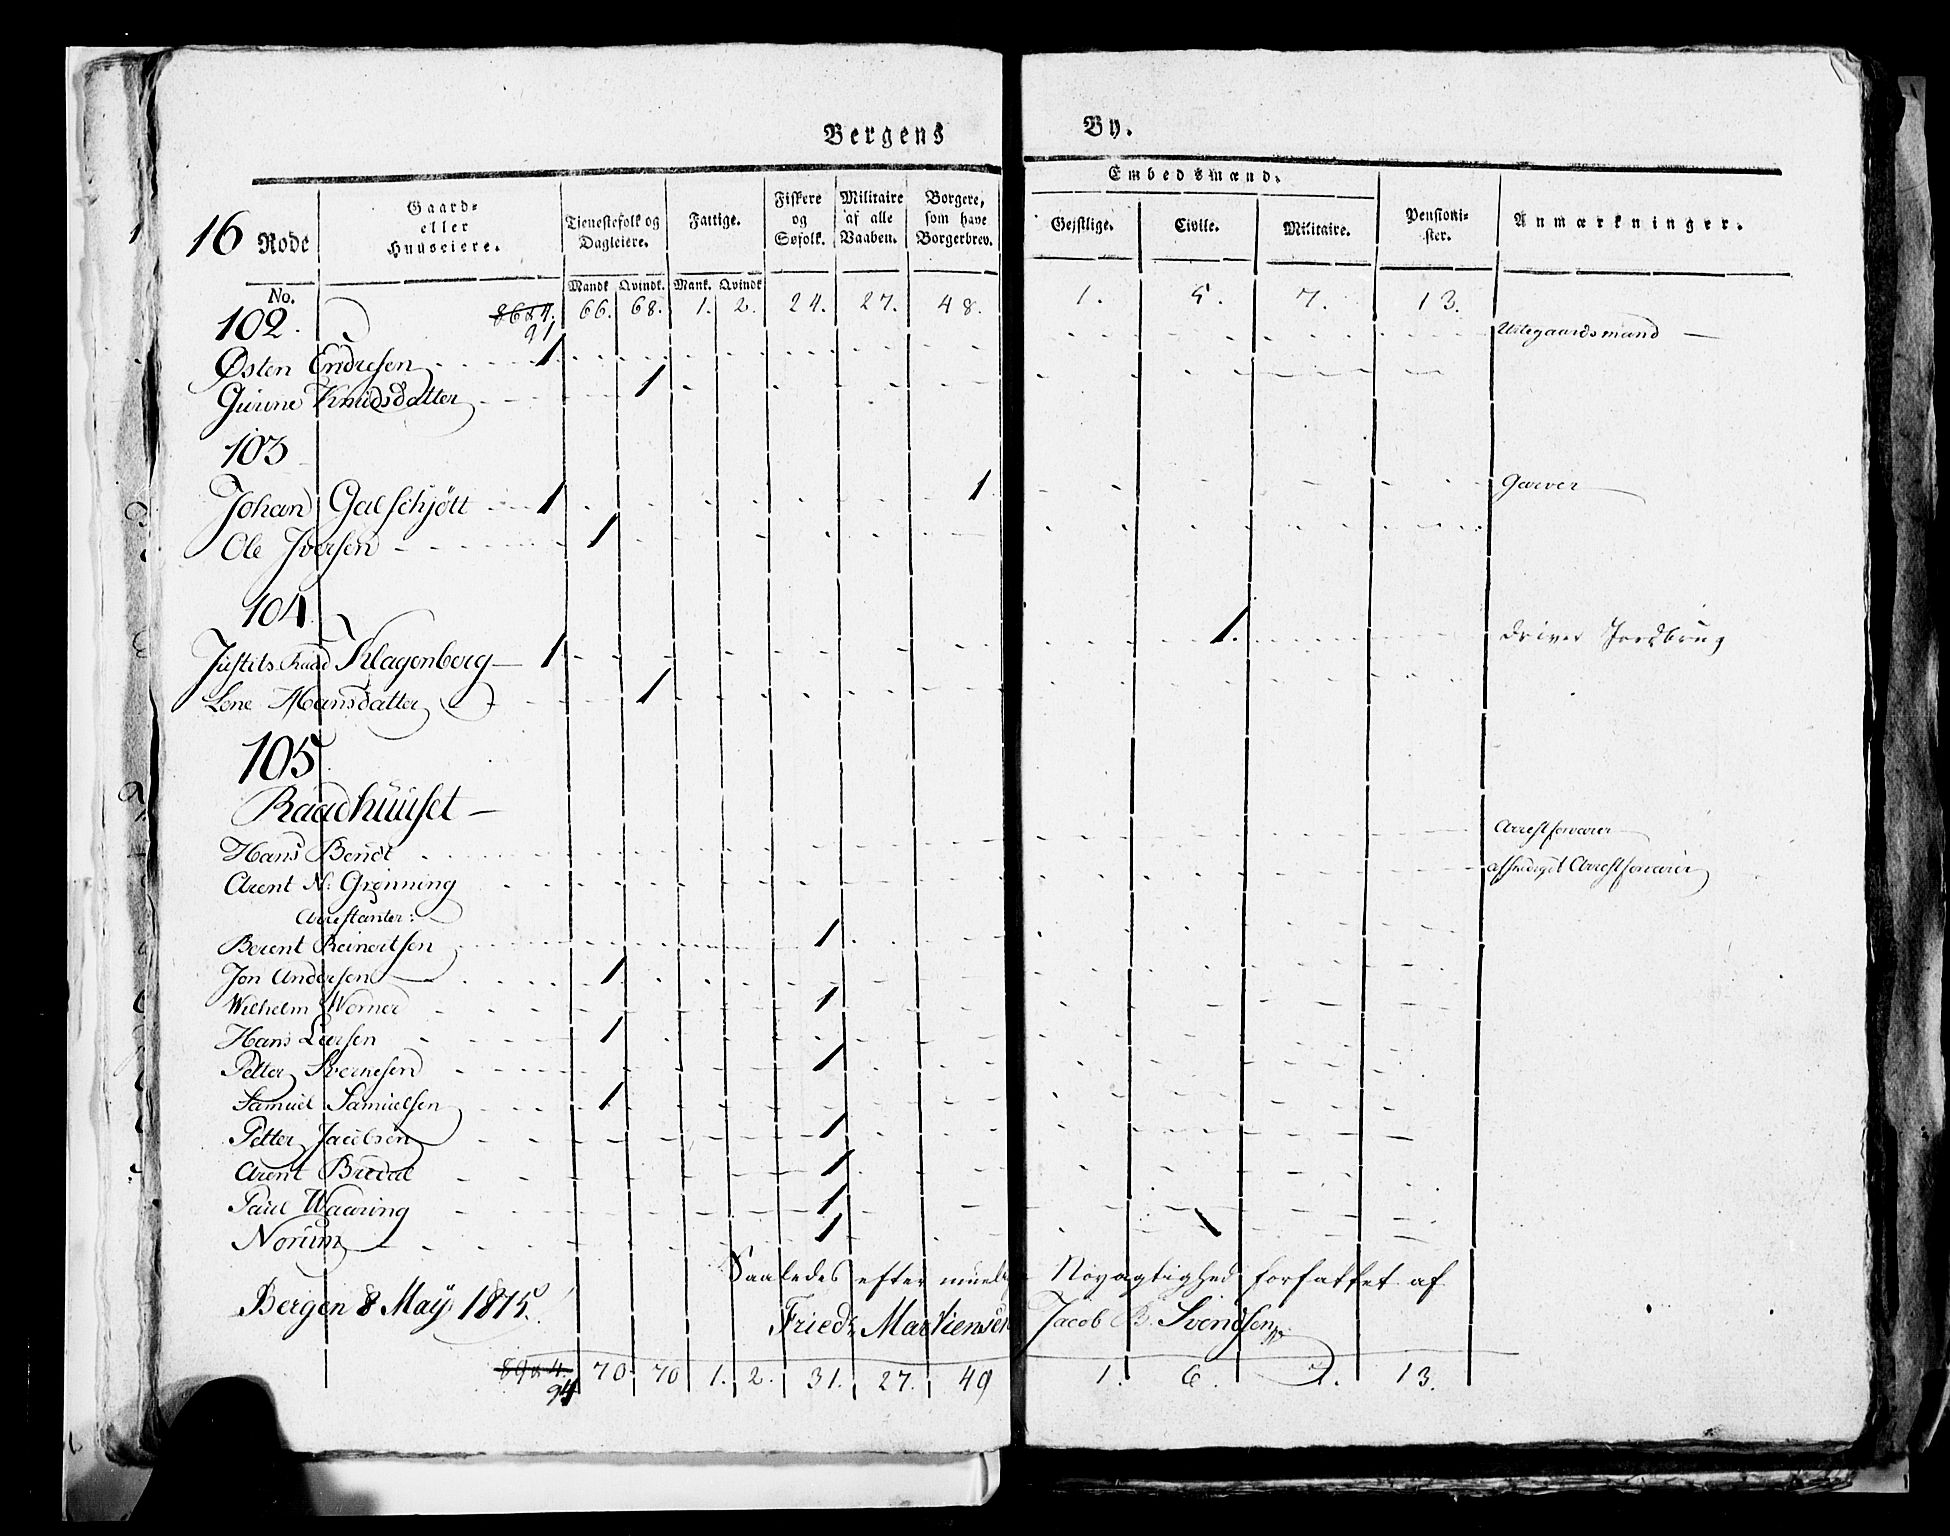 Bergens By.
16 Rode
Gaard- eller Huuseiere.
Tjenestefolk og Dagleiere.
Fattige.
Fiskere og Søfolk.
Militaire af alle Vaaben.
Borgere, som have Borgerbrev.
Embedsmænd.
Gejstlige. Civile. Militaire.
Pensioni- ster.
Anmærkninger.
No. Mandk. Qvindk. Mank. Qvindk.
102. 91 66. 68. 1. 2. 24. 27. 48. 1. 5. 7. 13.
Østen Endresen 1 Uitegaardsmand
Gurine Knudsdatter 1
103
Johan Galschjött 1 1 Garver
Ole Iversen 1
104
Justits Raad Klagenberg 1 1. driver Jordbrug
Lene Hansdatter 1
105
Raadhuuset
Hans Bendt Arrestforvarer
Arent N: Grønning afskediget Arrestforvarer
Arrestanter:
Berent Reinertsen 1
Jon Andersen 1
Wilhelm Werner 1
Hans Larsen 1
Petter 1
Samuel Samuelsen 1
Petter Jacobsen 1
Arent Bredal 1
Paul Waaring 1
Norum 1 1
Saaledes efter Nøyagtighed forfattet af
Bergen 8 May 1815. Friedr Martiensen Jacob B. Svendsen
94 70. 70 1. 2. 31. 27. 49 1. 6. 7. 13.